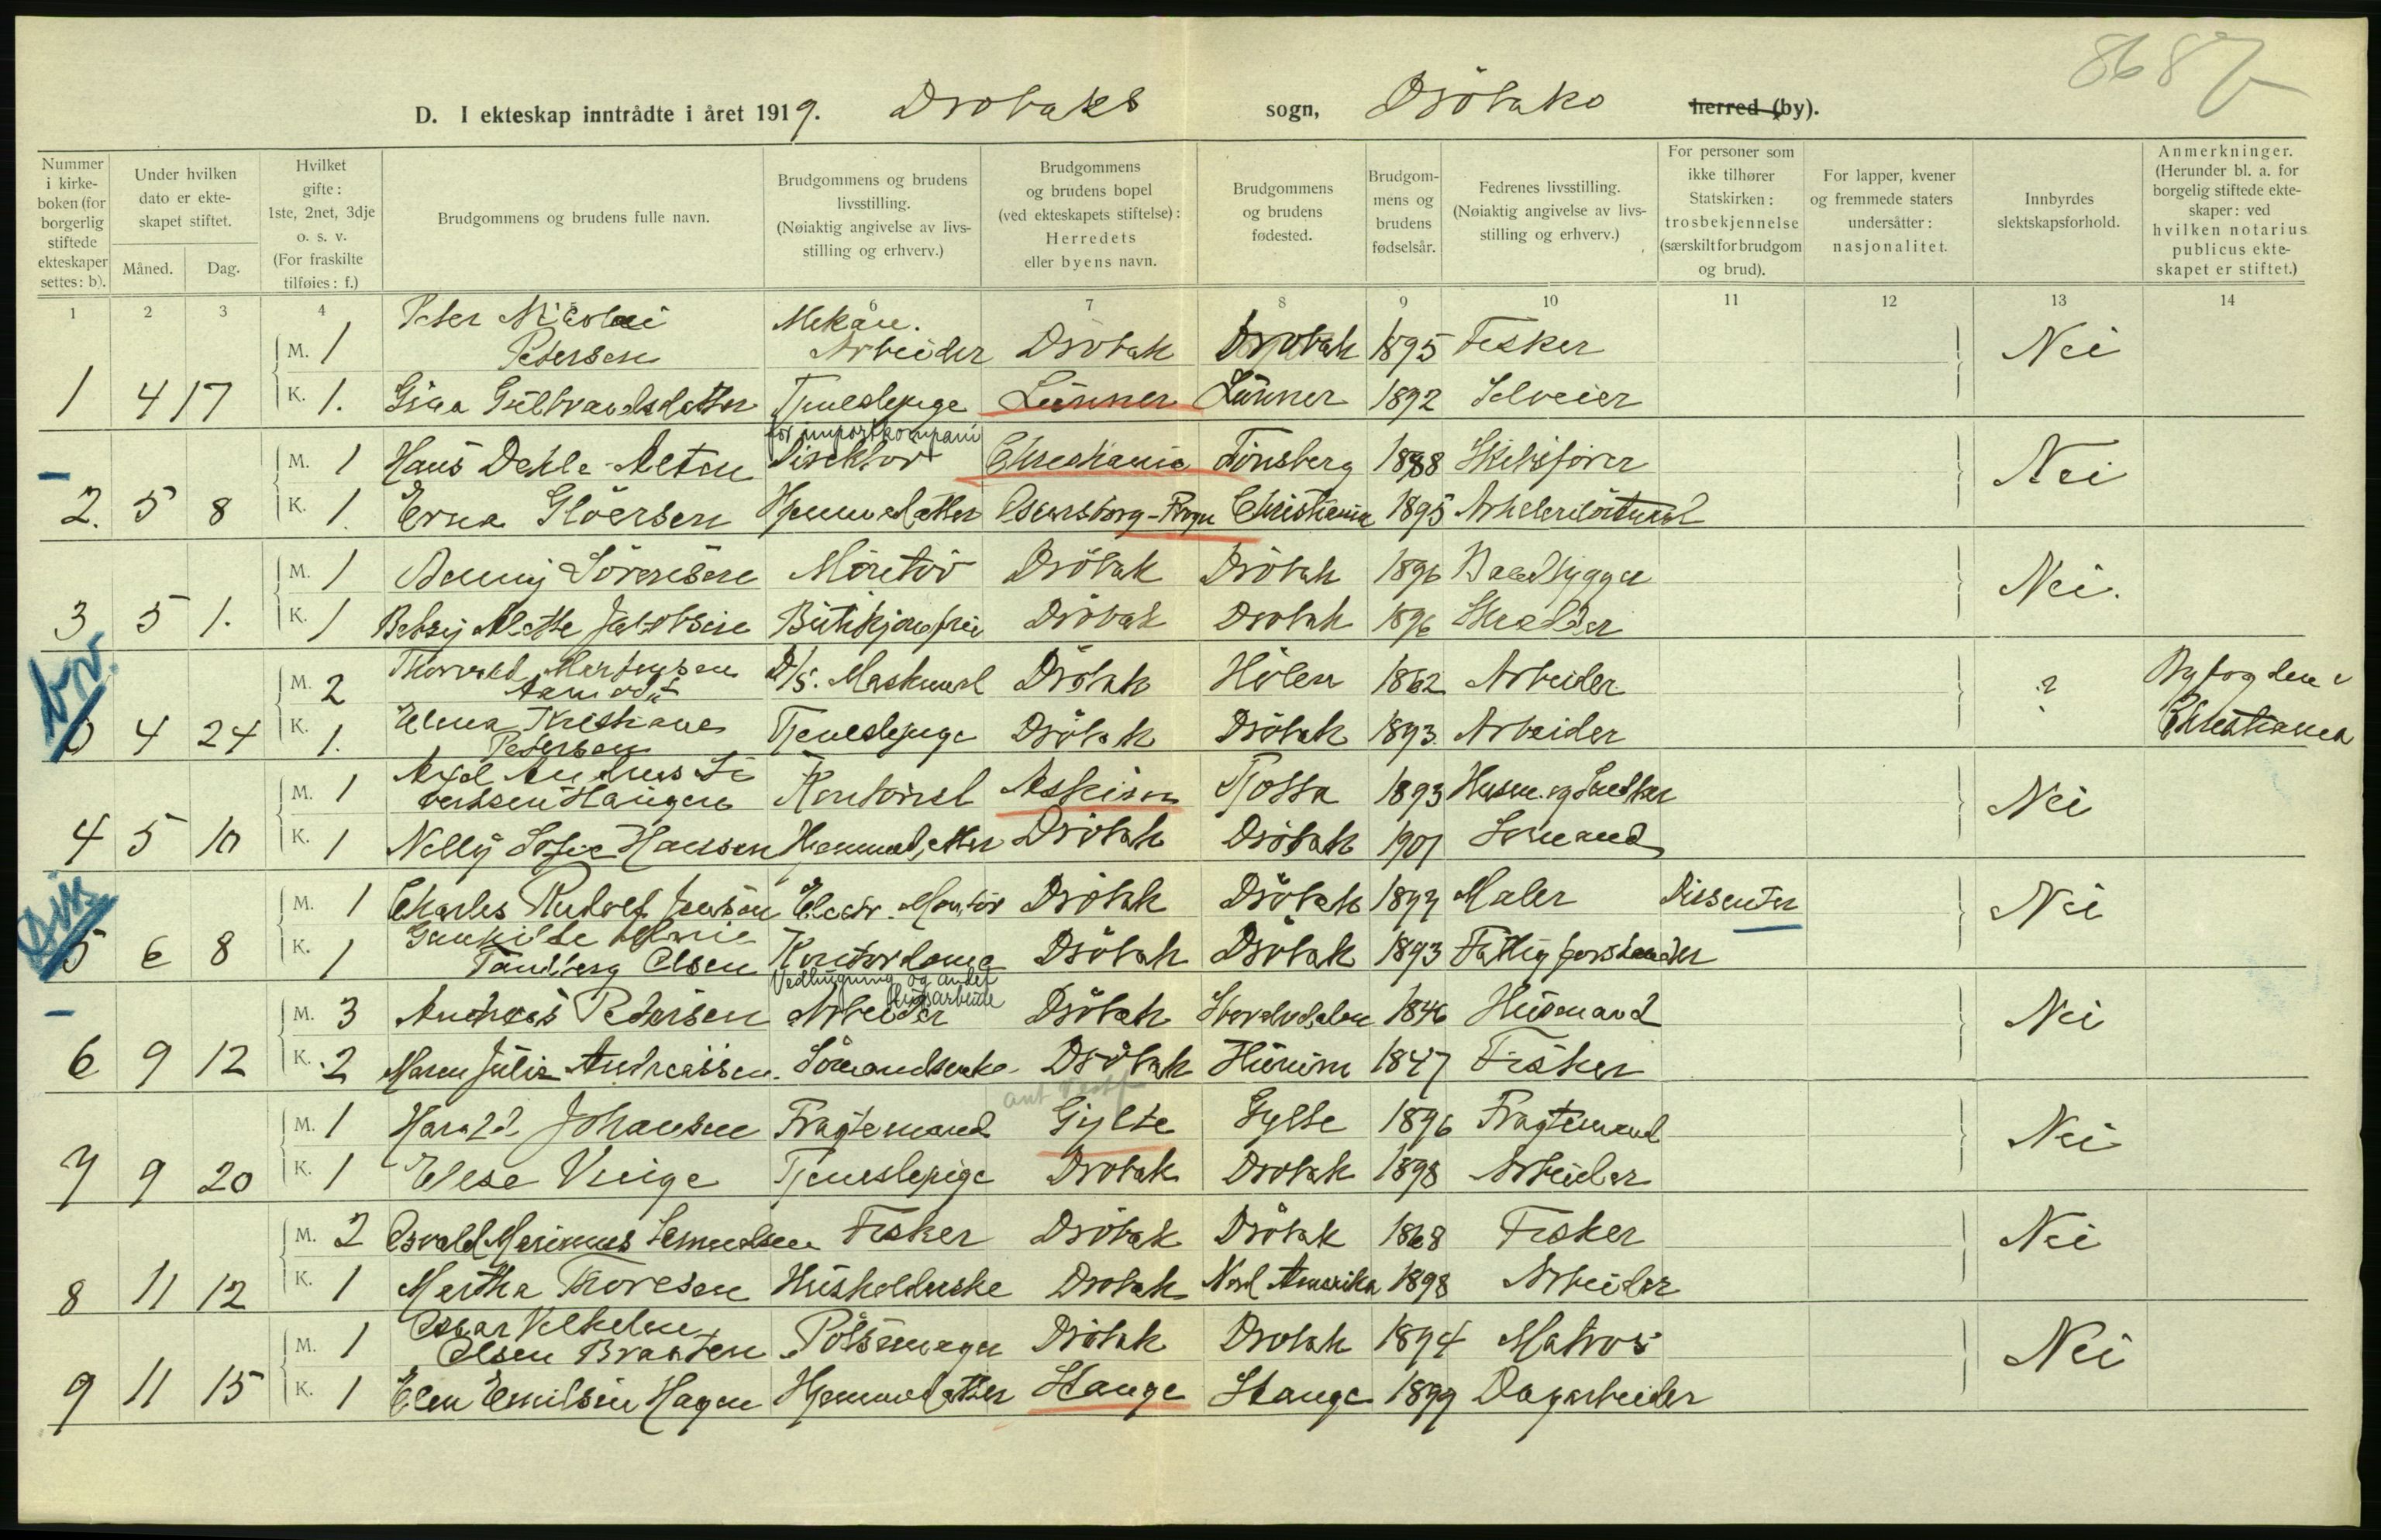 868
D. I ekteskap inntrådte i året 1919. Drøbaks sogn, Drøbaks herred (by).
Nummer i kirkeboken (for borgerlig stiftede ekteskaper settes: b).
Under hvilken dato er ekteskapet stiftet.
Måned. Dag.
Hvilket gifte: 1ste, 2net, 3dje o. s. v. (For fraskilte tilføies: f.)
Brudgommens og brudens fulle navn.
Brudgommens og brudens livsstilling. (Nøiaktig angivelse av livsstilling og erhverv.)
Brudgommens og brudens bopel (ved ekteskapets stiftelse): Herredets eller byens navn.
Brudgommens og brudens fødested.
Brudgommens og brudens fødselsår.
Fedrenes livsstilling. (Nøiaktig angivelse av livsstilling og erhverv.)
For personer som ikke tilhører Statskirken: trosbekjennelse (særskilt for brudgom og brud).
For lapper, kvener og fremmede staters undersåtter: nasjonalitet.
Innbyrdes slektskapsforhold.
Anmerkninger. (Herunder bl. a. for borgerlig stiftede ekteskaper: ved hvilken notarius publicus ekteskapet er stiftet.)
1 2 3 4 6 7 8 9 10 11 12 13 14
M. 1 Peter Nicolai Petersen Mekan. Arbeider Drøbak Drøbak 1895 Fisker Nei
1 4 17 K. 1. Gina Gulbrandsdatter Tjenestepige Lunner Lunner 1892 Selveier
M. 1 Hans Dehle-Alton for importkompani Direktør Christiania Tønsberg 1888 Skibsfører Nei
2. 5 8 K. 1. Erna Gløersen Hjemmedatter Oscarsborg-Frogn Christiania 1895
M. 1 Sørensen Montør Drøbak Drøbak 1896 Baadbygger Nei.
3 5 1. K. 1 Betzy Alette Jacobsen Drøbak Drøbak 1896 Skrædder
bv.
M. 2 Thorvald Martensen Aamodt D/S. Maskinist Drøbak Hølen 1862 Arbeider ? Byfogden i
0 4 24 K. 1. Elma Kristiane Petersen Tjenestepige Drøbak Drøbak 1893. Arbeider Christiania
M. 1 Axel Andreas Sivertsen Haugen Kontorist Askim 1893 Husm. og Snedker Nei
4 5 10 K. 1 Nelly Sofie Hansen Hjemmedatter Drøbak Drøbak 1901 Sømand
Diss
M. 1 Charles Rudolf Jensen Electr. Montør Drøbak Drøbak 1894 Maler Dissenter Nei
5 6 8 K. 1 Gunhilde Marie Tandberg Olsen Kontordame Drøbak Drøbak 1893 Fattigforstander
M. 3 Andreas Pedersen Vedhugning og andet Arbeider Drøbak 1846 Husmand Nei
6 9 12 K. 2 Maren Julie Andreassen Sømandsenke Drøbak Hurum 1847 Fisker
M. 1 Harald Johansen Fragtemand Gylte Gylte 1896 Fragtemand Nei
7 9 20 K. 1 Else Unige Tjenestepige Drøbak Drøbak 1898 Arbeider
M. 2 Osvald Marinius Semundsen Fisker Drøbak Drøbak 1868 Fisker Nei
8 11 12 K. 1 Martha Thoresen Husholderske Drøbak Nord Amerika 1898 Arbeider
M. 1 Oscar Vilhelm Olsen Braaten Pølsemager Drøbak Drøbak 1894 Matros Nei
9 11 15 K. 1 Elen Emilsen Hagen Hjemmedatter Stange Stange 1899 Dagarbeider